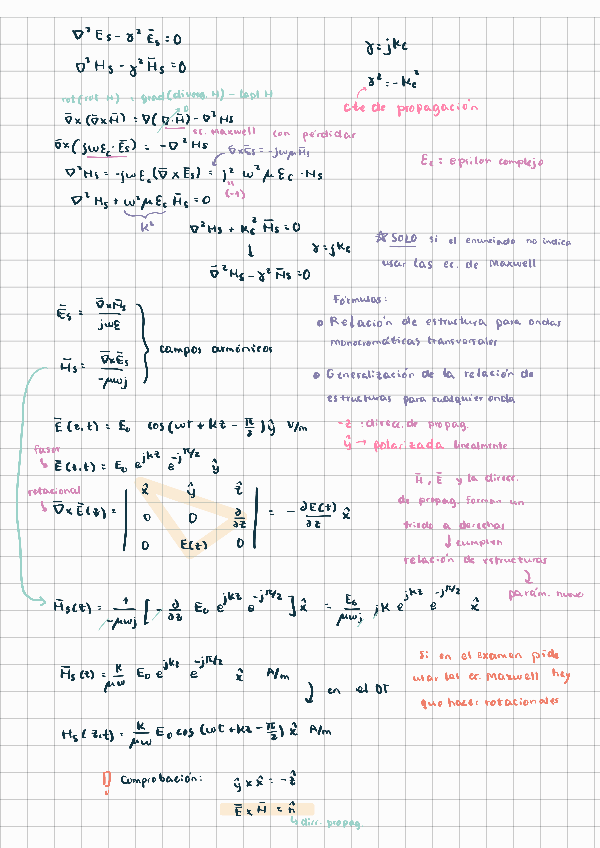 ∇²Es - γ² Ēs = 0
γ = jkc
∇²Hs - γ² H̄s = 0
γ² = -kc²
cte de propagación
rot(rot H) = grad(diverg. H) - lapl H
∇̄x(∇̄xH̄) = ∇(∇·H̄) - ∇²Hs
=0
ec. Maxwell con pérdidas
∇̄x(jωεc·Ēs) = -∇²Hs
∇̄xĒs = -jωμH̄s
εc = epsilon complejo
∇²Hs = -jωεc(∇̄xĒs) = j² ω² μ εc · Hs
(-1)
∇²Hs + ω²μεc H̄s = 0
k²
∇²Hs + kc² H̄s = 0
γ = jkc
☆ SOLO si el enunciado no indica
usar las ec. de Maxwell
∇²Hs - γ² H̄s = 0
Fórmulas:
Ēs = ∇̄xH̄s / jωε
Relación de estructura para ondas
monocromáticas transversales
campos armónicos
H̄s = ∇̄xĒs / -μωj
Generalización de la relación de
estructuras para cualquier onda
Ē(z,t) = E₀ cos(ωt + kz - π/2)ŷ V/m
-z : direc. de propag.
ŷ → polarizada linealmente
fasor
Ē(z,t) = E₀ e^jkz e^-jπ/2 ŷ
rotacional
∇̄xĒ(z) = | x̂ ŷ ẑ |
| 0 0 ∂/∂z | = - ∂E(z)/∂z x̂
| 0 E(z) 0 |
H̄, Ē y la direcc.
de propag. forman un
triedo a derechas
↓ cumplen
relación de estructuras
↓
parám. nuevo
H̄s(z) = 1/-μωj [ - ∂/∂z E₀ e^jkz e^-jπ/2 ] x̂ = E₀/μωj jk e^jkz e^-jπ/2 x̂
Si en el examen pide
usar las ec. Maxwell hay
que hacer rotacionales
H̄s(z) = k/μω E₀ e^jkz e^-jπ/2 x̂ A/m
en el DT
Hs(z,t) = k/μω E₀ cos(ωt + kz - π/2) x̂ A/m
! Comprobación:
ŷ x x̂ = -ẑ
Ē x H̄ = n̂
↳ direc. propag.